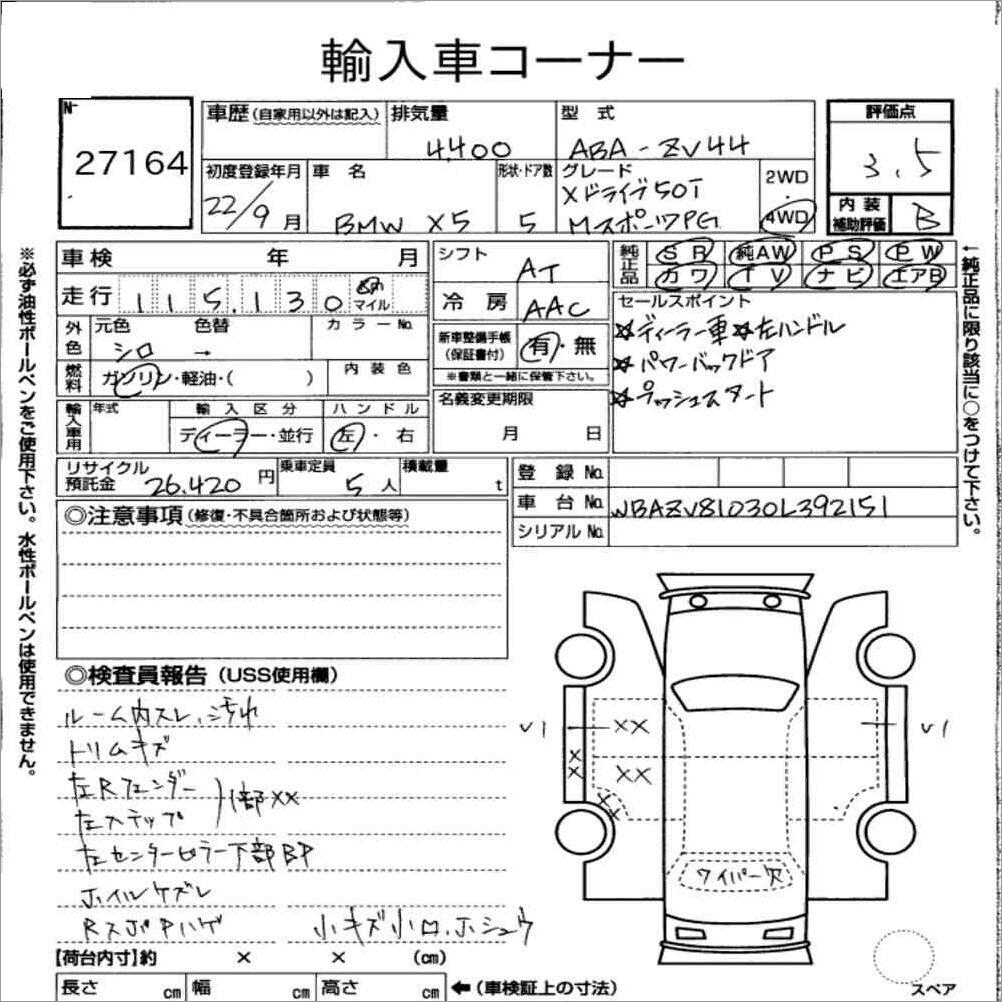 輸入車コーナー
№
27164
車歴(自家用以外は記入)
排気量
4,400
型式
ABA-ZV44
評価点
3.5
初度登録年月
22/9月
車名
BMW X5
形状・ドア数
5
グレード
Xドライブ50T
MスポーツPG
2WD
・
4WD
内装
補助評価
B
車検 年 月
走行 115,130 km マイル
シフト
AT
冷房
AAC
純正品
SR 純AW PS PW
カワ TV ナビ エアB
外色
元色 色替
シロ →
カラーNo.
新車整備手帳
(保証書付)
有・無
※書類と一緒に保管下さい。
セールスポイント
☆ディーラー車☆左ハンドル
☆パワーバックドア
☆プッシュスタート
燃料
ガソリン・軽油・( )
内装色
輸入車用
年式
輸入区分
ディーラー・並行
ハンドル
左・右
名義変更期限
月 日
リサイクル
預託金 26,420 円
乗車定員
5人
積載量
t
登録No.
車台No. WBAZV81030L392151
シリアルNo.
◎注意事項(修復・不具合箇所および状態等)
◎検査員報告(USS使用欄)
ルーム内スレ、汚れ
トリムキズ
左Rフェンダー
左ステップ
1部XX
左センターピラー下部BP
ホイルケズレ
RスポPハゲ
小キズ小凹、ホシュウ
U1 XX U1
XX
XX
XX
ワイパー欠
スペア
【荷台内寸】約 × × (cm)
長さ cm 幅 cm 高さ cm ←(車検証上の寸法)
※必ず油性ボールペンをご使用下さい。水性ボールペンは使用できません。
←純正品に限り該当に○をつけて下さい。